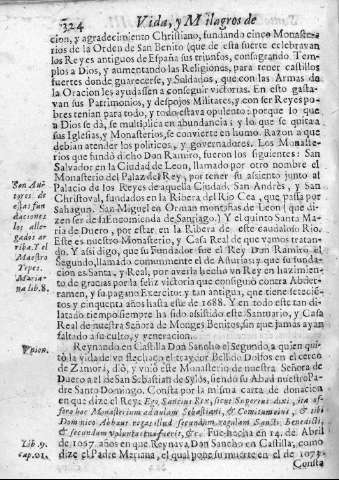 324 Vida, y Milagros de
cion, y agradecimiento Christiano, fundando cinco Monaste-
rios de la Orden de San Benito (que de esta suerte celebravan
los Reyes antiguos de España sus triunfos, consagrando Tem-
plos a Dios, y aumentando las Religiones, para tener castillos
fuertes donde guarecerse, y Soldados, que con las Armas de
la Oracion les ayudassen a conseguir victorias. En esto gasta-
van sus Patrimonios, y despojos Militares, y con ser Reyes po-
bres tenian para todo, y todo estava opulento: porque lo que
a Dios se dà, se multiplica en abundancia; y lo que se quita a
sus Iglesias, y Monasterios, se convierte en humo. Razon a que
debian atender los politicos, y governadores. Los Monaste-
rios que fundò dicho Don Ramiro, fueron los siguientes: San
Salvador en la Ciudad de Leon, llamado por otro nombre el
Monasterio del Palaz del Rey, por tener su asiento junto al
Palacio de los Reyes de aquella Ciudad. San Andrès, y San
Christoval, fundados en la Ribera del Rio Cea, que passa por
Sahagun. San Miguel en Orman montañas de Leon (que di-
zen ser de la Encomienda de Santiago.) Y el quinto Santa Ma-
ria de Duero, por estar en la Ribera de este caudaloso Rio.
Este es nuestro Monasterio, y Casa Real de que vamos tratan-
do. Y assi digo, que su Fundador fue el Rey Don Ramiro el
Segundo, llamado comunmente el de Asturias: y que su funda-
cion es Santa, y Real, por averla hecho un Rey en hazimien-
to de gracias por la feliz victoria que consiguiò contra Abder-
ramen, y su pagano Exercito; y tan antigua, que tiene setecien-
tos y cinquenta años hasta este de 1688. Y en todo este tan di-
latado tiempo siempre ha sido assistido este Santuario, y Casa
Real de nuestra Señora de Monges Benitos, sin que jamas ayan
faltado a su culto, y veneracion.
Reynando en Castilla Don Sancho el Segundo, a quien qui-
tò la vida de un flechaço el traydor Bellido Dolfos en el cerco
de Zamora, diò, y uniò este Monasterio de nuestra Señora de
Duero a el de San Sebastian de Sylos, siendo su Abad nuestro Pa-
dre Santo Domingo. Consta por la misma carta de donacion
en que dize el Rey: Ego Sancius Rex, sicut superius dixi, ita af-
foro hoc Monasterium ad aulam Sebastiani, & Comitum eius, & tibi
Dominico Abbas regas illud secundum regulam Sancti Benedicti,
& secundum voluntas tua fuerit, &c. Fue hecha en 14. de Abril
de 1067. años en que Reynava Don Sancho en Castilla, como
dize el Padre Mariana, el qual pone su muerte en el de 1073.
Consta
Son Au-
tores de
estas fun
daciones
los alle-
gados ar
riba. Y el
Maestro
Yepes.
Maria-
na lib. 8.
Lib. 9.
cap. 01.